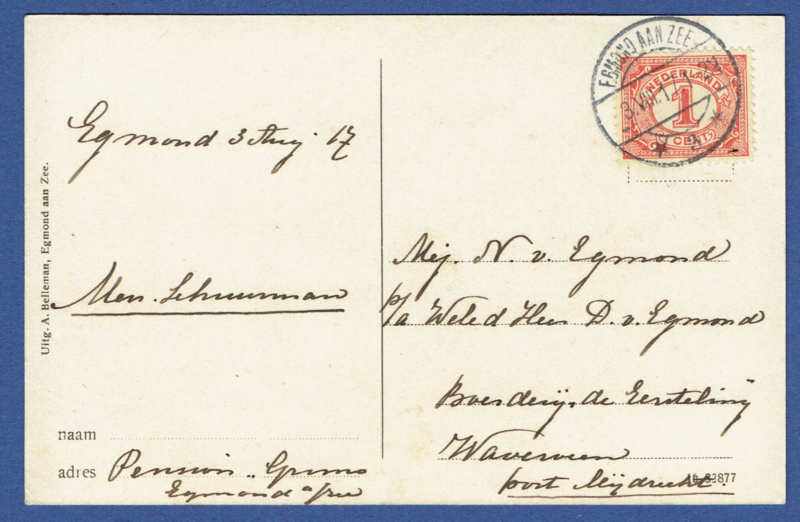 EGMOND AAN ZEE
3.VIII.17
NEDERLAND
1
CENT
Egmond 3 Aug 17
Uitg. A. Belleman, Egmond aan Zee.
Men. Schuurman
naam
adres Pension „Primo
Egmond a/zee
Mej. N. v. Egmond
p/a Weled Heer D. v. Egmond
Boerderij „de Eersteling
Waverveen
post Mijdrecht.